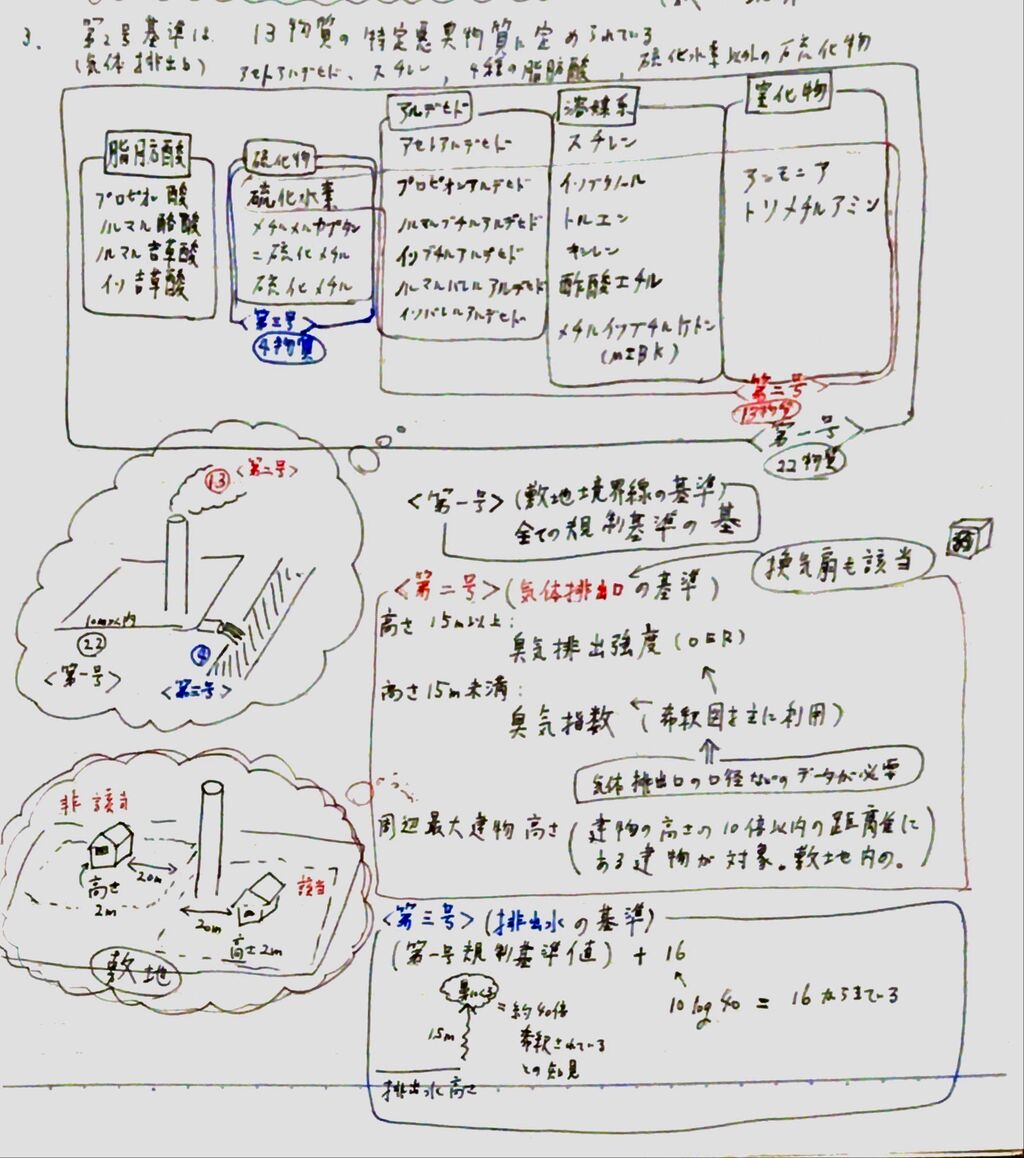 3. 第2号基準は 13物質の特定悪臭物質に定められている
(気体排出口) アセトアルデヒド、スチレン、4種の脂肪酸、硫化水素以外の硫化物
脂肪酸
プロピオン酸
ノルマル酪酸
ノルマル吉草酸
イソ吉草酸
硫化物
硫化水素
メチルメルカプタン
二硫化メチル
硫化メチル
<第三号>
4物質
アルデヒド
アセトアルデヒド
プロピオンアルデヒド
ノルマルブチルアルデヒド
イソブチルアルデヒド
ノルマルバレルアルデヒド
イソバレルアルデヒド
溶媒系
スチレン
イソブタノール
トルエン
キシレン
酢酸エチル
メチルイソブチルケトン
(MIBK)
窒化物
アンモニア
トリメチルアミン
<第二号>
13物質
<第一号>
22物質
13 <第二号>
10m以内
22
<第一号>
4
<第三号>
<第一号> (敷地境界線の基準)
全ての規制基準の基
換気扇も該当
<第二号> (気体排出口の基準)
高さ 15m以上:
臭気排出強度 (OER)
高さ 15m未満:
臭気指数 (希釈図を主に利用)
気体排出口の口径ないのデータが必要
周辺最大建物高さ (建物の高さの10倍以内の距離に
ある建物が対象。敷地内の。)
非該当
高さ
2m
20m
該当
20m
高さ2m
敷地
<第三号> (排出水の基準)
(第一号規制基準値) + 16
10 log 40 = 16 からきている
= 約40倍
希釈されている
との知見
1.5m
排出水高さ